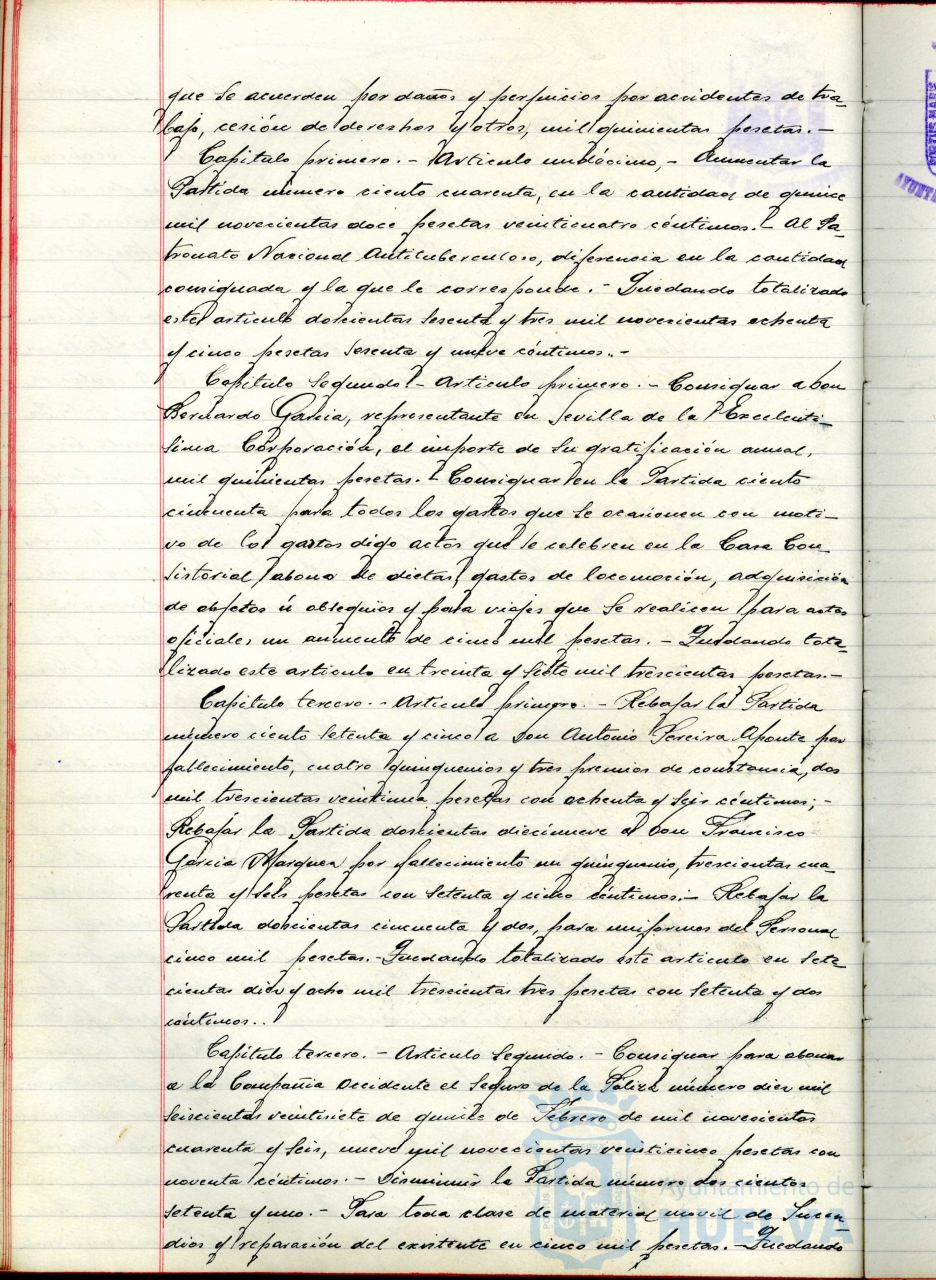 que se acuerden por daños y perjuicios por accidentes de tra-
bajo, cesión de derechos y otros, mil quinientas pesetas.-
Capitulo primero.- Articulo undécimo,- Aumentar la
Partida número ciento cuarenta, en la cantidad de quince
mil novecientas doce pesetas veinticuatro céntimos.- Al Pa-
tronato Nacional Antituberculoso, diferencia en la cantidad
consignada y la que le corresponde.- Quedando totalizado
este articulo doscientas sesenta y tres mil novecientas ochenta
y cinco pesetas sesenta y nueve céntimos.-
Capitulo segundo.- Articulo primero.- Consignar a Don
Bernardo Garcia, representante en Sevilla de la Excelentí-
sima Corporación, el importe de su gratificación anual,
mil quinientas pesetas.- Consignar en la Partida ciento
cincuenta para todos los gastos que se ocasionen con moti-
vo de los gastos digo actos que se celebren en la Casa Con
sistorial, abono de dietas, gastos de locomoción, adquisición
de objetos ú obsequios y para viajes que se realicen para actos
oficiales, un aumento de cinco mil pesetas.- Quedando tota-
lizado este articulo en treinta y siete mil trescientas pesetas.-
Capitulo tercero.- Articulo primero.- Rebajar la Partida
número ciento setenta y cinco a Don Antonio Pereira Aponte por
fallecimiento, cuatro quinquenios y tres premios de constancia, dos
mil trescientas veintiuna pesetas con ochenta y seis céntimos;-
Rebajar la Partida doscientas diecinueve a Don Francisco
Garcia Marquez por fallecimiento un quinquenio, trescientas cua-
renta y seis pesetas con setenta y cinco céntimos.- Rebajar la
Partida doscientas cincuenta y dos, para uniformes del Personal
cinco mil pesetas.- Quedando totalizado este articulo en sete-
cientas diez y ocho mil trescientas tres pesetas con setenta y dos
céntimos..
Capítulo tercero.- Articulo segundo.- Consignar para abonar
a la Compañia Occidente el Seguro de la Poliza número diez mil
seiscientas veintisiete de quince de Febrero de mil novecientos
cuarenta y seis, nueve mil novecientas veinticinco pesetas con
noventa céntimos.- Disminuir la Partida número dos cientos
setenta y uno.- Para toda clase de material movil de Incen-
dios y reparación del existente en cinco mil pesetas.- Quedando
Ayuntamiento de
HUELVA